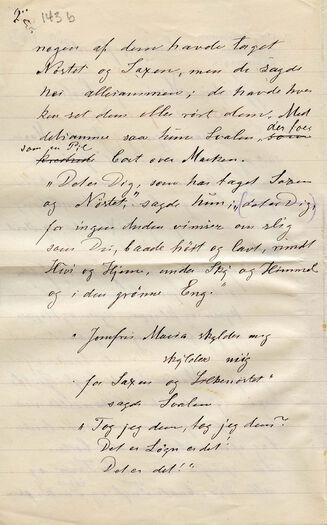 2.
1436
nogen af dem havde taget
Nøstet og Saxen, men de sagde
nei allesammen; de havde hver
ken set dem eller rørt dem. Med
detsamme saa hun Svalen, der foer
som en Pil
bort over Marken.
"Det er Dig, som har taget Saxen
og Nøstet," sagde hun, "det er Dig,
for ingen Anden vimser om slig
som Du, baade høit og lavt, rundt
Hivi og Hjem, under Sky og Himmel
og i den grønne Eng."
"Jomfru Maria skylder mig
skylder mig
for Saxen og Silkenøstet"
sagde Svalen
"Tog jeg dem, tog jeg dem?
Det er Løgn er det!
Det er det!"